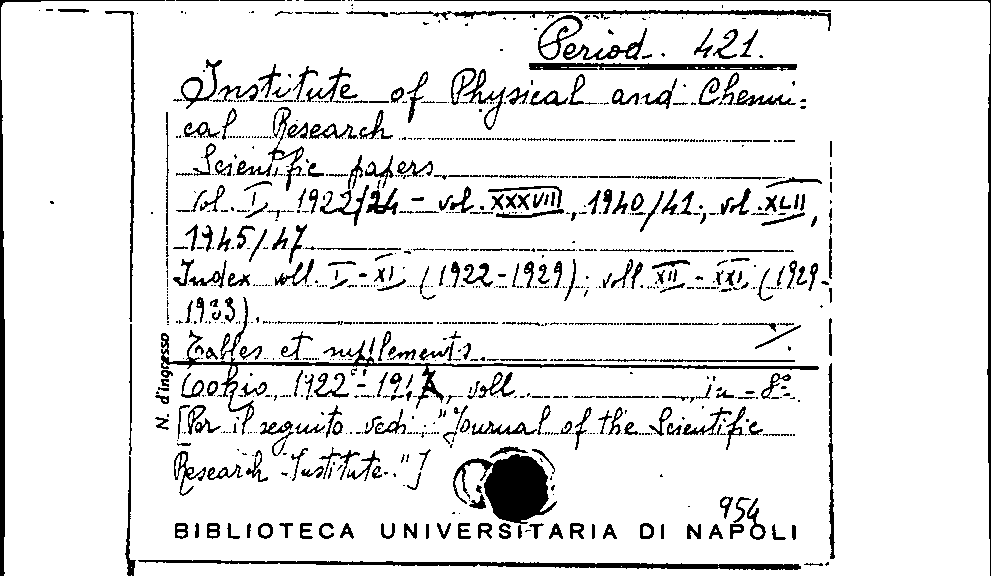 Period. 421.
Institute of Physical and Chemi=
cal Research
Scientific papers.
Vol. I, 1922/24 - vol. XXXVIII, 1940/41; vol. XLII,
1945/47.
Index voll. I-XI (1922-1929); voll. XII-XXI (1929-
1933).
Tables et supplements. ./.
N. d'ingresso
Tokio, 1922-1947, voll. in-8º
[Per il seguito vedi: "Journal of the Scientific
Research Institute."]
954
BIBLIOTECA UNIVERSITARIA DI NAPOLI